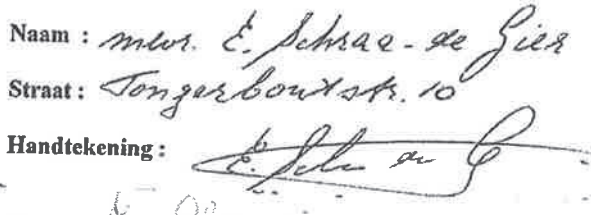 Naam : mevr. E. Schraa - de Gier
Straat : Tongerloutstr. 10
Handtekening : E. Sch de G